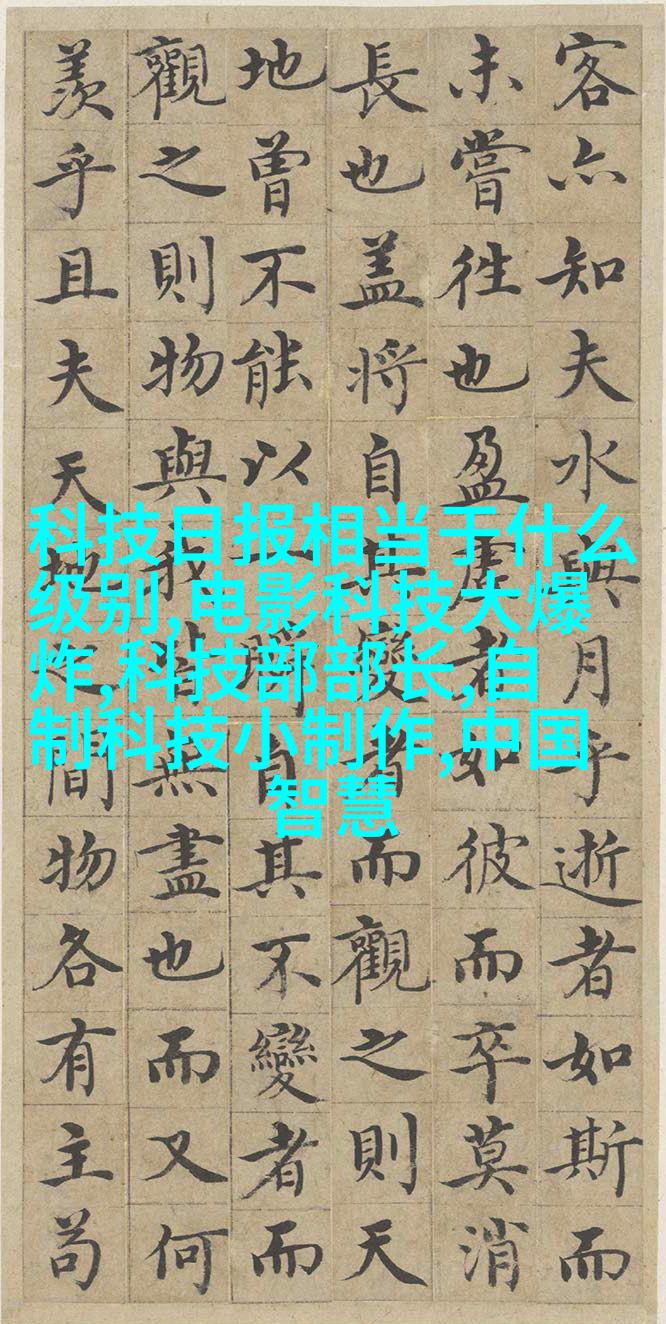 客亦知夫水與月乎逝者如斯而
未嘗往也盈虛者如彼而卒莫消
長也盖將自其變者而觀之則天
地曾不能以一瞬自其不變者而
觀之則物與我皆無盡也而又何
羨乎且夫天地之間物各有主苟
科技日报相当于什么
级别,电影科技大爆
炸,科技部部长,自
制科技小制作,中国
智慧